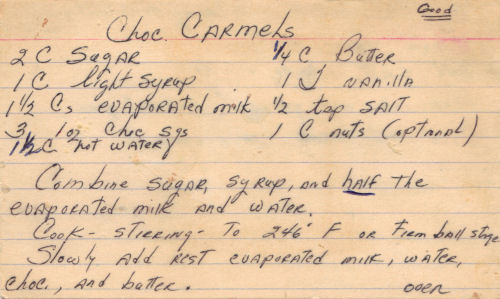 Good
Choc. CARMELS
2 C SUGAR 1/4 C Butter
1 C light Syrup 1 T vanilla
1 1/2 Cs evaporated milk 1/2 tsp SALT
3 1 oz Choc sqs 1 C nuts (optional)
1 1/2 C hot WATER
Combine sugar, syrup, and half the
evaporated milk and water.
Cook - stirring - To 246° F or Firm ball stage
Slowly Add rest evaporated milk, water,
choc., and butter. over